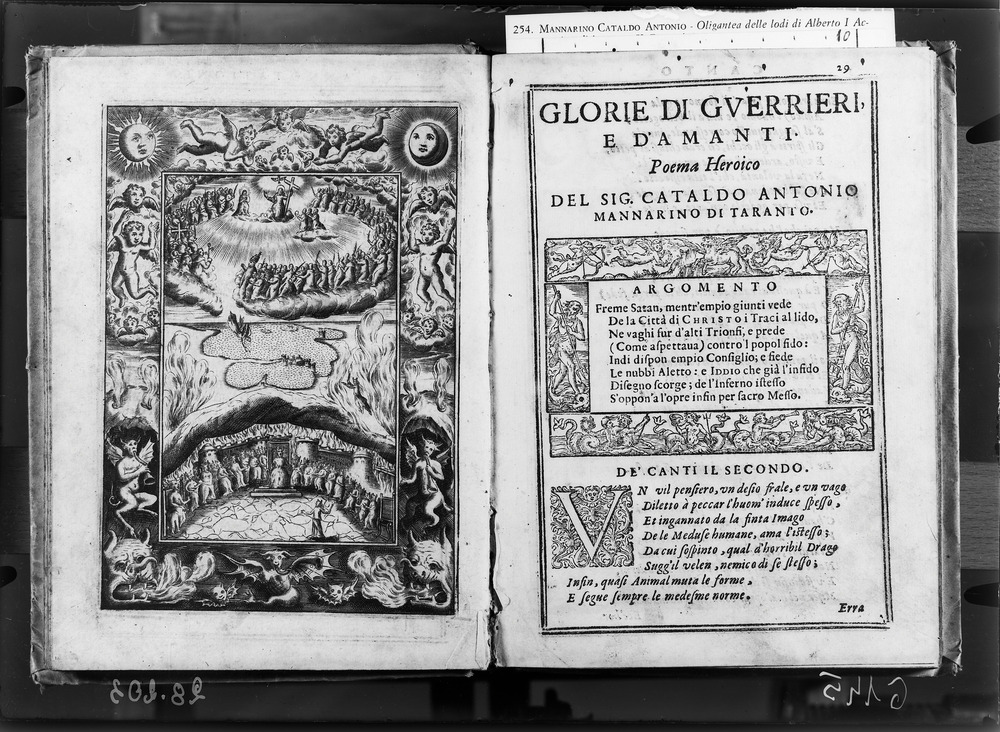 254. MANNARINO CATALDO ANTONIO - Oligantea delle lodi di Alberto I Ac-
10
29
GLORIE DI GVERRIERI,
E D'AMANTI.
Poema Heroico
DEL SIG. CATALDO ANTONIO
MANNARINO DI TARANTO.
ARGOMENTO
Freme Satan, mentr'empio giunti vede
De la Città di CHRISTO i Traci al lido,
Ne vaghi fur d'alti Trionfi, e prede
(Come aspettaua) contro'l popol fido:
Indi dispon empio Consiglio; e fiede
Le nubbi Aletto: e IDDIO che già l'infido
Disegno scorge; de l'Inferno istesso
S'oppon'a l'opre infin per sacro Messo.
DE' CANTI IL SECONDO.
VN vil pensiero, vn desio frale, e vn vago
Diletto à peccar l'huom' induce spesso,
Et ingannato da la finta Imago
De le Meduse humane, ama l'istesso;
Da cui sospinto, qual d'horribil Drago
Sugg'il velen, nemico di se stesso;
Infin, quasi Animal muta le forme,
E segue sempre le medesme norme.
Erra
28.203
G 145